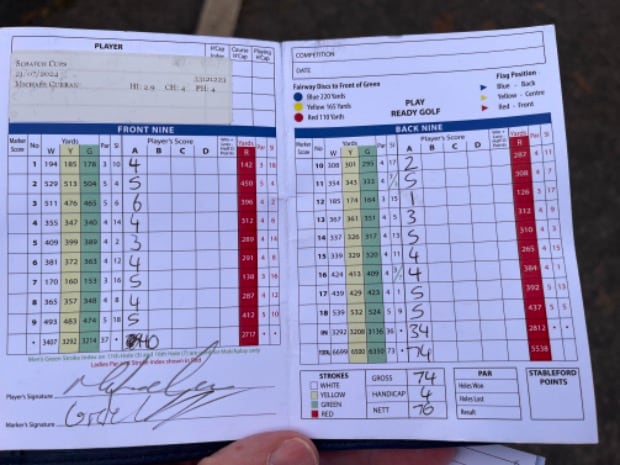 PLAYER H'Cap Index Course H'Cap Playing H'Cap
SCRATCH CUPS
21/07/2024 33121223
MICHAEL CURRAN HI: 2.9 CH: 4 PH: 4
FRONT NINE
Marker Score No Yards Par SI Player's Score Yards Par SI
W Y G A B C D R
1 194 185 178 3 10 4 142 3 18
2 529 513 504 5 4 5 450 5 4
3 511 476 465 5 6 6 396 4 2
4 355 347 340 4 14 4 312 4 6
5 409 399 389 4 2 3 289 4 14
6 381 372 363 4 12 4 291 4 8
7 170 160 153 3 16 5 138 3 16
8 365 357 348 4 8 4 287 4 12
9 493 483 474 5 18 5 412 5 10
3407 3292 3214 37 • 40 2717 • •
Men's Green Stroke Index on 11th Hole (3) and 16th Hole (7) are used for Matchplay only
Ladies Par and Stroke Index shown in Red
Player's Signature
Marker's Signature
COMPETITION
DATE
Fairway Discs to Front of Green
Blue 220 Yards
Yellow 165 Yards
Red 110 Yards
PLAY
READY GOLF
Flag Position
Blue - Back
Yellow - Centre
Red - Front
BACK NINE
Marker Score No Yards Par SI Player's Score Yards Par SI
W Y G A B C D R
10 308 301 295 4 17 2 287 4 11
11 354 343 333 4 5 308 4 7
12 185 174 164 3 15 1 126 3 17
13 367 361 351 4 5 3 312 4 9
14 337 326 317 4 13 5 310 4 3
15 339 329 320 4 11 4 265 4 15
16 424 413 409 4 4 384 4 1
17 439 429 423 4 1 5 392 5 13
18 539 532 524 5 9 5 437 5 5
IN 3292 3208 3136 36 • 34 2812 • •
TOTAL 6699 6500 6350 73 • 74 5538
STROKES
WHITE
YELLOW
GREEN
RED
GROSS 74
HANDICAP 4
NETT 70
PAR
Holes Won
Holes Lost
Result
STABLEFORD
POINTS